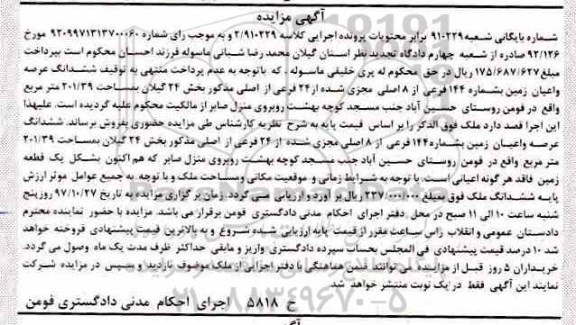 آگهی مزایده
شماره بایگانی شعبه ۹۱۰۲۲۹ برابر محتویات پرونده اجرایی کلاسه ۲/۹۱۰۲۲۹ و به موجب رای شماره ۹۲۰۹۹۷۱۳۱۳۷۰۰۰۶۰ مورخ
۹۲/۱۳۶ صادره از شعبه چهارم دادگاه تجدید نظر استان گیلان محمد رضا شبانی ماسوله فرزند احسان محکوم است بپرداخت
مبلغ ۱۷۵/۶۸۷/۶۲۷ ریال در حق محکوم له پری خلیقی ماسوله . که باتوجه به عدم پرداخت منتهی به توقیف ششدانگ عرصه
واعیان زمین بشماره ۱۴۴ فرعی از ۸ اصلی مجزی شده از ۲۴ فرعی از اصلی مذکور بخش ۲۴ گیلان بمساحت ۲۰۱/۳۹ متر مربع
واقع در فومن روستای حسین آباد جنب مسجد کوچه بهشت روبروی منزل صابر از مالکیت محکوم علیه گردیده است. علیهذا
این اجرا قصد دارد ملک فوق الذکر را بر اساس قیمت پایه به شرح نظریه کارشناس طی مزایده حضوری بفروش برساند. ششدانگ
عرصه واعیان زمین بشماره ۱۴۴ فرعی از ۸ اصلی مجزی شده از ۲۴ فرعی از اصلی مذکور بخش ۲۴ گیلان بمساحت ۲۰۱/۳۹
متر مربع واقع در فومن روستای حسین آباد جنب مسجد کوچه بهشت روبروی منزل صابر که هم اکنون بشکل یک قطعه
زمین فاقد هر گونه اعیانی است. با توجه به شرایط زمانی و موقعیت مکانی ومساحت ملک و با توجه به جمیع عوامل موثر ارزش
پایه ششدانگ ملک فوق بمبلغ ۲۳۷/۰۰۰/۰۰۰ ریال بر آورد و ارزیابی می گردد. زمان برگزاری مزایده به تاریخ ۹۷/۱۰/۲۷ روز پنج
شنبه ساعت ۱۰ الی ۱۱ صبح در محل دفتر اجرای احکام مدنی دادگستری فومن برقرار می باشد. مزایده با حضور نماینده محترم
دادستان عمومی و انقلاب راس ساعت مقرر از قیمت پایه ارزیابی شده شروع و به بالاترین قیمت پیشنهادی فروخته خواهد
شد ۱۰ درصد قیمت پیشنهادی فی المجلس بحساب سپرده دادگستری واریز و مابقی حداکثر ظرف مدت یک ماه وصول می گردد
خریداران ۵ روز قبل از مزایده می توانند ضمن هماهنگی با دفتر اجرایی از ملک موصوف بازدید و سپس در مزایده شرکت
نمایند این آگهی فقط در یک نوبت منتشر خواهد شد.
ح ۵۸۱۸ اجرای احکام مدنی دادگستری فومن
۰۲۱-۸۸۳۴۹۶۷۰-۵